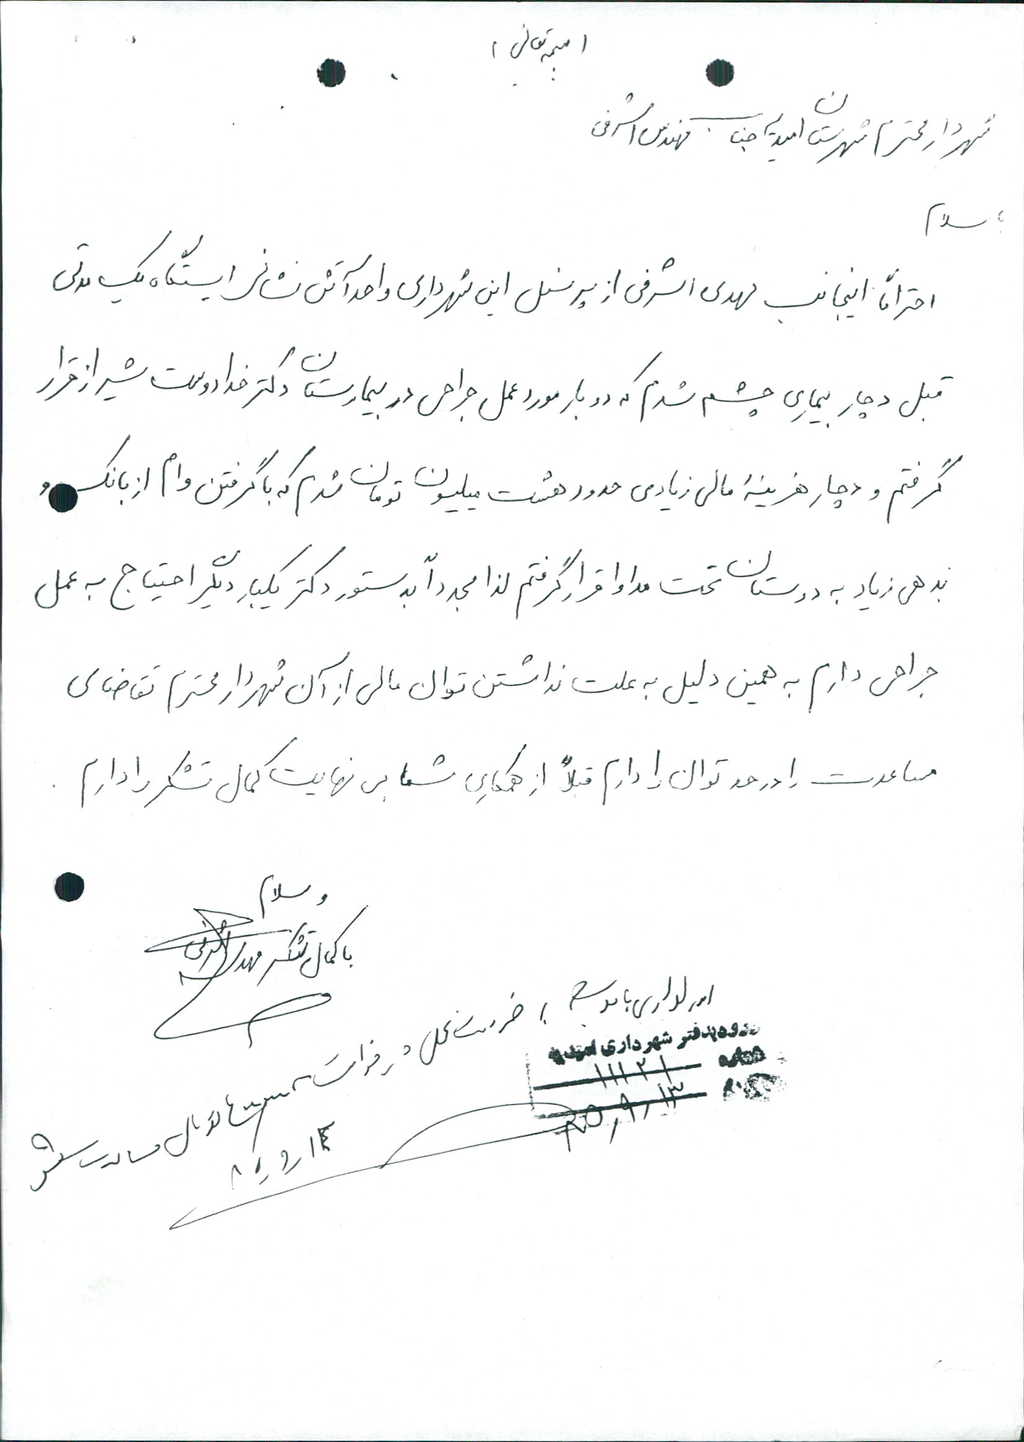 (بسمه تعالی)
شهردار محترم شهرستان امیدیه جناب مهندس اشرفی
با سلام
احتراماً اینجانب مهدی اشرفی از پرسنل این شهرداری واحد آتش نشانی ایستگاه یک مدتی
قبل دچار بیماری چشم شدم که دو بار مورد عمل جراحی در بیمارستان دکتر خدادوست شیراز قرار
گرفتم و دچار هزینهٔ مالی زیادی حدود هشت میلیون تومان شدم که با گرفتن وام از بانک و
بدهی زیاد به دوستان تحت مداوا قرار گرفتم لذا مجدداً به دستور دکتر یکبار دیگر احتیاج به عمل
جراحی دارم به همین دلیل به علت نداشتن توان مالی از آن شهردار محترم تقاضای
مساعدت را در حد توان را دارم قبلاً از همکاری شما بی نهایت کمال تشکر را دارم .
و سلام
با کمال تشکر مهدی اشرفی
امور اداری با توجه به ضرورت عمل درخواست
ورود به دفتر شهرداری امیدیه
شماره ۱۱۱۲۱
۸۵/۹/۱۳